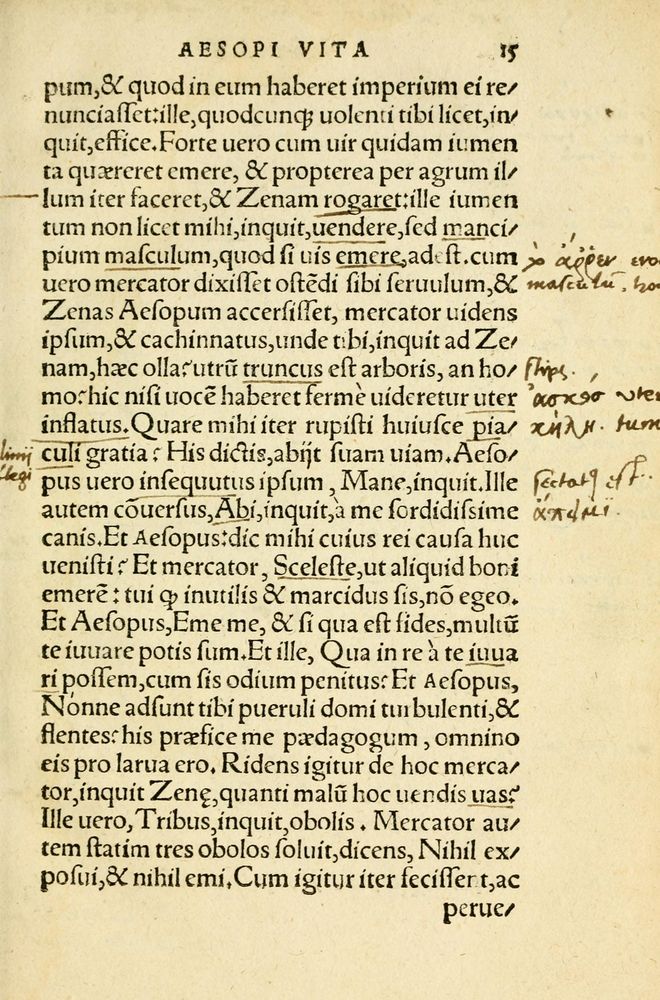 AESOPI VITA 15
pum,& quod in eum haberet imperium ei re/
nunciasset:ille,quodcunqꝫ uolenti tibi licet,in/
quit,effice.Forte uero cum uir quidam iumen
ta quæreret emere, & propterea per agrum il/
lum iter faceret,& Zenam rogaret:ille iumen
tum non licet mihi,inquit,uendere,sed manci/
pium masculum,quod si uis emere,adest.cum
uero mercator dixisset ostēdi sibi seruulum,&
masculū.
Zenas Aesopum accersisset, mercator uidens
ipsum,& cachinnatus,unde tibi,inquit ad Ze/
nam,hæc olla?utrū truncus est arboris, an ho/
stips.
mo?hic nisi uocē haberet fermè uideretur uter
inflatus.Quare mihi iter rupisti huiusce pia/
culi gratia? His dictis,abijt suam uiam.Aeso/
pus uero insequutus ipsum , Mane,inquit.Ille
autem cōuersus,Abi,inquit,à me sordidissime
canis.Et Aesopus:dic mihi cuius rei causa huc
uenisti? Et mercator, Sceleste,ut aliquid boni
emerē: tui ꝙ inutilis & marcidus sis,nō egeo.
Et Aesopus,Eme me, & si qua est fides,multū
te iuuare potis sum.Et ille, Qua in re à te iuua
ri possem,cum sis odium penitus? Et Aesopus,
Nónne adsunt tibi pueruli domi turbulenti,&
flentes? his præfice me pædagogum , omnino
eis pro larua ero. Ridens igitur de hoc merca/
tor,inquit Zenę,quanti malū hoc uendis uas?
Ille uero, Tribus,inquit,obolis . Mercator au/
tem statim tres obolos soluit,dicens, Nihil ex/
posui,& nihil emi.Cum igitur iter fecissent,ac
perue/